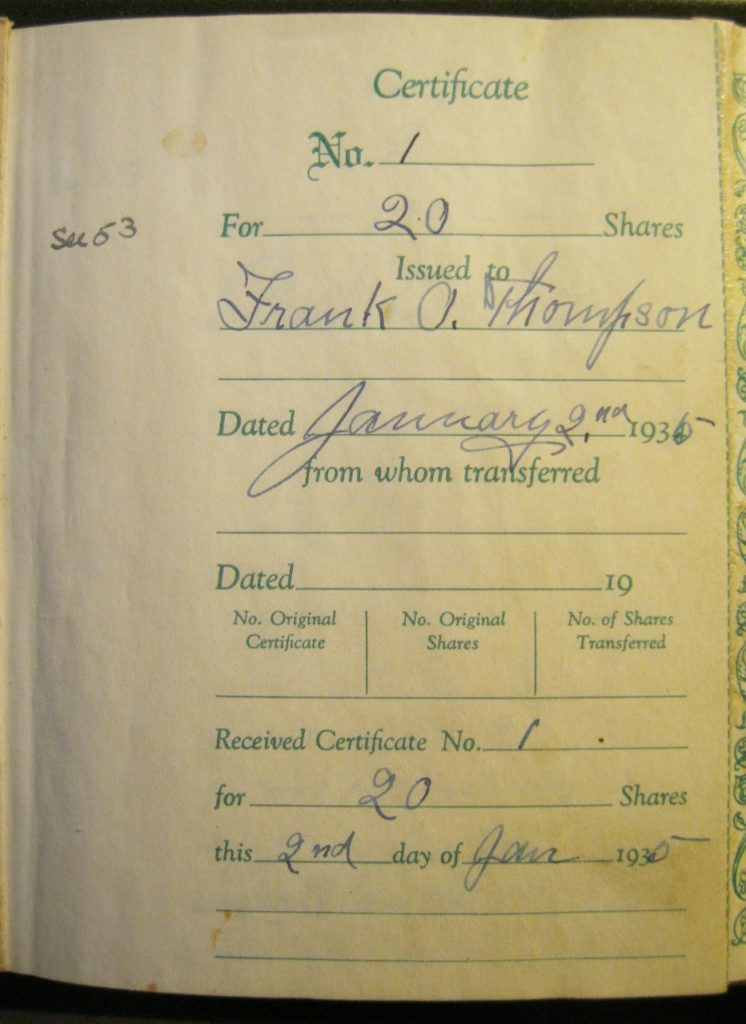 Certificate
No. 1
For 20 Shares
See 53
Issued to
Frank O. Thompson
Dated January 2nd 1935
from whom transferred
Dated 19
No. Original Certificate
No. Original Shares
No. of Shares Transferred
Received Certificate No. 1
for 20 Shares
this 2nd day of Jan 1935